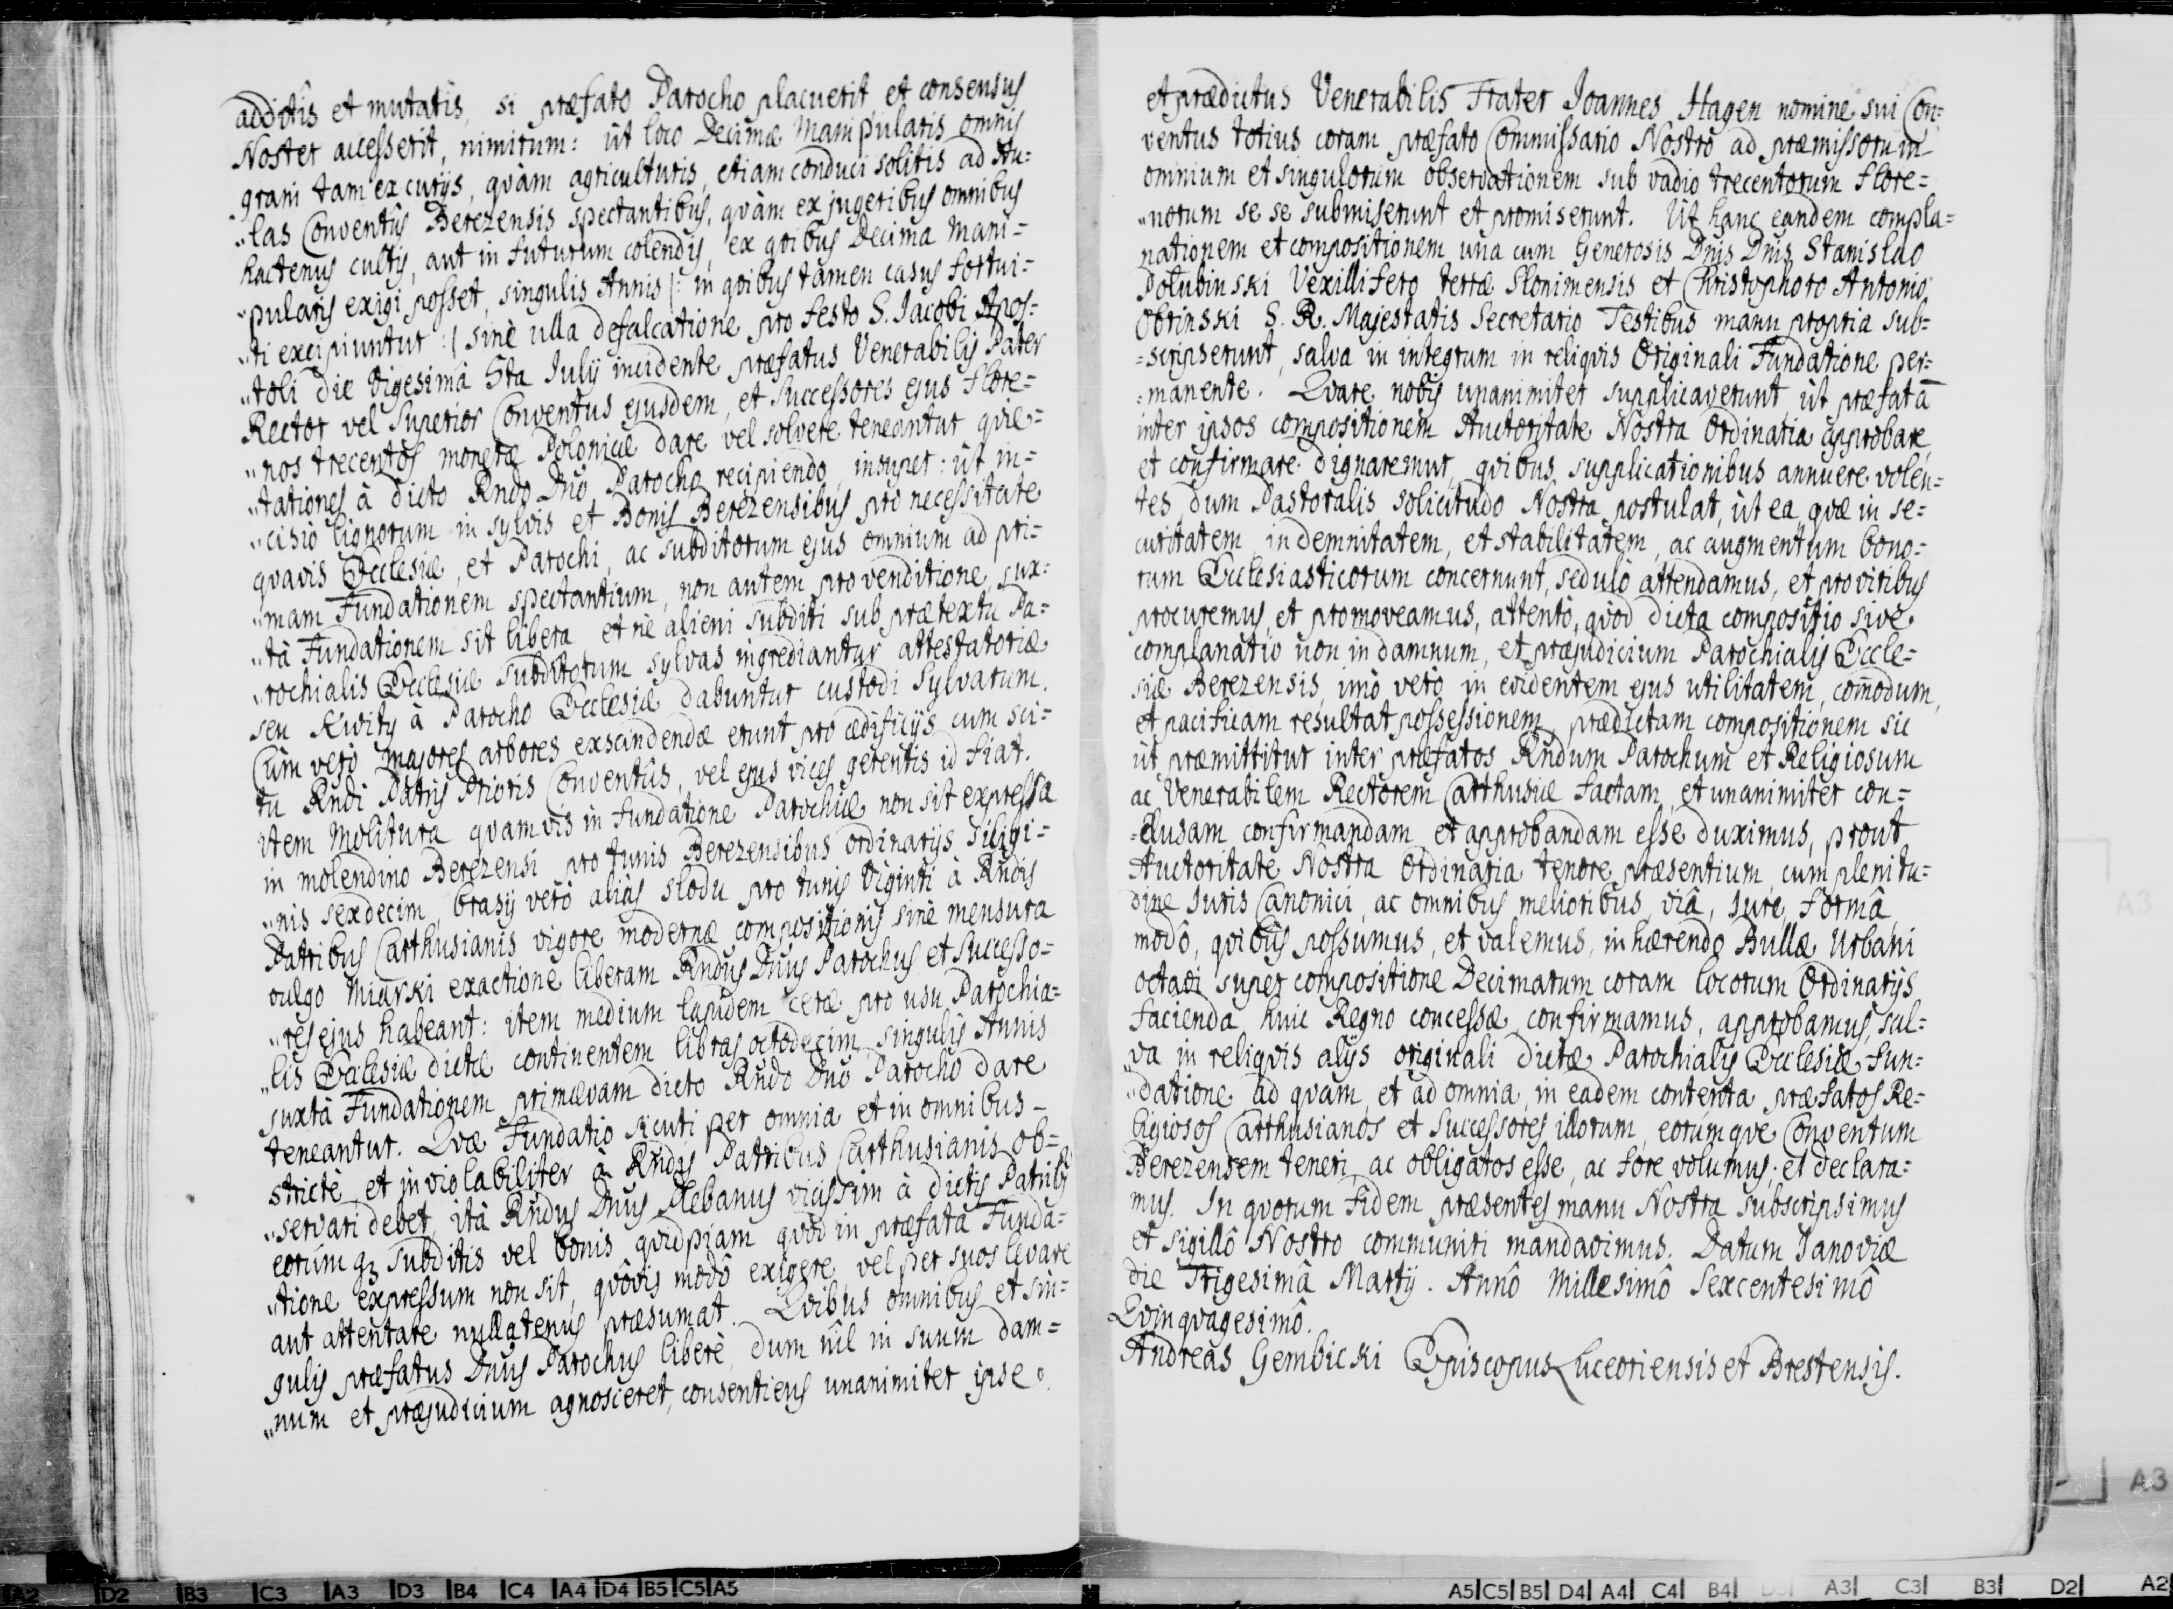 additis et mutatis, si præfato Parocho placuerit et consensus
Noster accesserit, nimirum: ut loco Decimæ Manipularis omnis
grani tam ex curijs, quàm agriculturis, etiam conduci solitis ad Au=
"las Conventûs Berezensis spectantibus, quàm ex jugeribus omnibus
hactenus cultis, aut in futurum colendis, ex quibus Decima Mani=
"pularis exigi posset, singulis Annis /: in quibus tamen casus fortui=
"ti excipiuntur :/ sine ulla defalcatione pro festo S. Jacobi Apos=
"toli die Vigesimâ 5ta Julij incidente præfatus Venerabilis Pater
Rector vel Superior Conventus ejusdem, et Successores ejus Flore=
"nos trecentos monetæ Polonicæ dare vel solvere teneantur quie=
"tationes à dicto Rndo Dno Parocho recipiendo, insuper: ut in=
"cisio lignorum in sylvis et Bonis Berezensibus pro necessitate
quavis Ecclesiæ, et Parochi, ac subditorum ejus omnium ad pri=
"mam Fundationem spectantium, non autem pro venditione, jux=
"tà Fundationem sit libera et ne alieni subditi sub prætextu Pa=
"rochialis Ecclesiæ subditorum sylvas ingrediantur attestatoriæ
seu Kwity à Parocho Ecclesiæ dabuntur custodi sylvarum.
Cùm verò majores arbores exscindendæ erunt pro ædificijs cum sci=
tu Rndi Patris Prioris Conventûs, vel ejus vices gerentis id fiat.
item Molitura quamvis in fundatione Parochiæ non sit expressa
in molendino Berezensi pro tunis Berezensibus ordinarijs siligi=
"nis sexdecim, brasij verò aliàs słodu pro tunis viginti à Rndis
Patribus Carthusianis vigore modernæ compositionis sinè mensura
vulgo Miarki exactione liberam Rndus Dnus Parochus et successo=
"res ejus habeant: item medium lapidem ceræ pro usu Parochia=
"lis Ecclesiæ dictæ continentem libras octodecim singulis Annis
juxtà Fundationem primævam dicto Rndo Dno Parocho dare
teneantur. Quæ Fundatio sicuti per omnia et in omnibus
strictè et inviolabiliter à Rndis Patribus Carthusianis ob=
"servari debet, ità Rndus Dnus Plebanus vicissim à dictis Patribus
eorumq; subditis vel bonis quidpiam quod in præfata Funda=
"tione expressum non sit, quôvis modô exigere, vel per suos levare
aut attentare nullatenus præsumat. Quibus omnibus et sin=
gulis præfatus Dnus Parochus liberè, dum nîl in suum dam=
"num et præjudicium agnosceret, consentiens unanimiter ipse
et prædictus Venerabilis Frater Joannes Hagen nomine sui Con=
ventus totius coram præfato Commissario Nostro ad præmissorum
omnium et singulorum observationem sub vadio trecentorum Flore=
"norum se se submiserunt et promiserunt. Ut hanc eandem compla=
nationem et compositionem unà cum Generosis Dnis Dnis Stanislao
Połubinski Vexillifero terræ Slonimensis et Christophoro Antonio
Obrinski S. R. Majestatis Secretario Testibus manu propria sub=
=scripserunt, salva in integrum in reliquis Originali Fundatione per=
=manente. Quare nobis unanimiter supplicaverunt, ut præfatã
inter ipsos compositionem Auctoritate Nostra Ordinaria approbare
et confirmare dignaremur, quibus supplicationibus annuere volen=
tes, dum Pastoralis solicitudo Nostra postulat, ut ea quæ in se=
curitatem, indemnitatem, et stabilitatem, ac augmentum bono=
rum Ecclesiasticorum concernunt, sedulò attendamus, et pro viribus
procuremus, et promoveamus, attentò, quòd dicta compositio sive
complanatio non in damnum, et præjudicium Parochialis Eccle=
siæ Berezensis, imò verò in evidentem ejus utilitatem, com̃odum,
et pacificam resultat possessionem, prædictam compositionem sic
ut præmittitur inter præfatos Rndum Parochum et Religiosum
ac Venerabilem Rectorem Carthusiæ factam, et unanimiter con=
=clusam, confirmandam et approbandam esse duximus, prout
Auctoritate Nostra Ordinaria tenore præsentium, cum plenitu=
dine Juris Canonici, ac omnibus melioribus viâ, Jure, formâ
modô, quibus possumus, et valemus, inhærendo Bullæ Urbani
octavi super compositione Decimarum coram locorum Ordinarijs
facienda huic Regno concessæ confirmamus, approbamus, sal=
va in reliquis alijs originali dictæ Parochialis Ecclesiæ fun=
"datione ad quam, et ad omnia, in eadem contenta præfatos Re=
ligiosos Carthusianos et Successores illorum, eorumque Conventum
Berezensem teneri, ac obligatos esse, ac fore volumus, et declara=
mus. In quorum Fidem præsentes manu Nostra subscripsimus
et sigillô Nostro communiri mandavimus. Datum Janoviæ
die Trigesimâ Martij. Annô Millesimô Sexcentesimô
Quinquagesimô.
Andreas Gembicki Episcopus Luceoriensis et Brestensis.
A3
A3
A2 D2 B3 C3 A3 D3 B4 C4 A4 D4 B5 C5 A5
A5 C5 B5 D4 A4 C4 B4 D3 A3 C3 B3 D2 A2